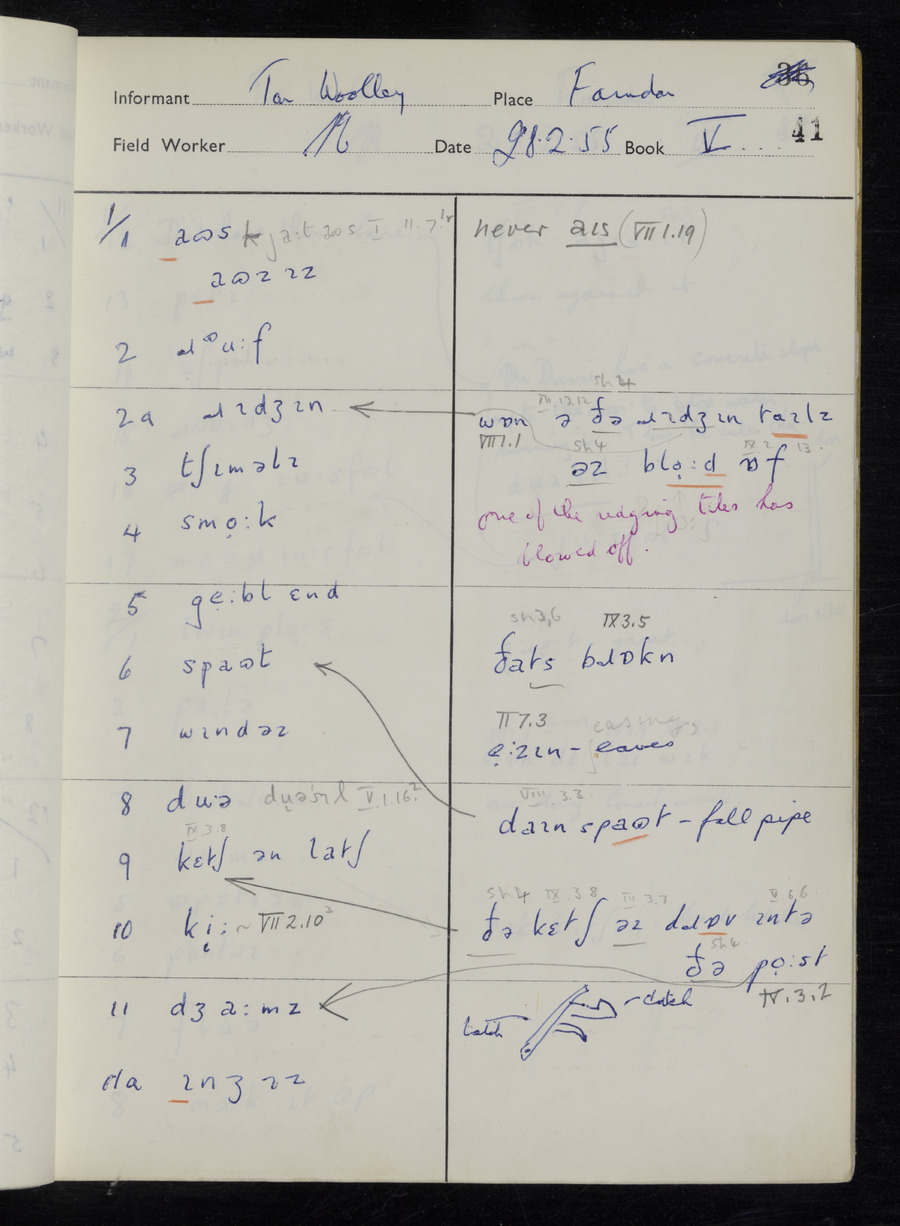 Informant Tom Woolley Place Farndon
Field Worker Date 28.2.55 Book V 41
1/1 aʊs
never aɪs (VII 1.19)
aʊzɪz
2 ɹʊu:f
2a ɹɪdʒɪn
sh 4
III.12.12
wɒn ə ðə ɹɪdʒɪn taɪlz
VII 1.1 sh 4 IX 2 13.
əz blo̞:d ɒf
3 tʃɪməlɪ
4 smo̞:k
one of the ridging tiles has
blowed off.
5 ge̞:bl ɛnd
sh 3,6 IX 3.5
6 spaʊt
ðats bɹɒkn
II 7.3 easings
7 wɪndəz
e̞:zɪn - eaves
8 duə V.1.16.²
VIII 3.3
daɪn spaʊt - fall pipe
IX 3.8
9 kɛtʃ ən latʃ
sh 4 IX 3.8 III 3.7 V 6.6
10 ki̞: ~ VII 2.10³
ðə kɛtʃ əz dɹɒv ɪntə
sh 4
ðə po̞:st
IV.3.2
11 dʒa:mz
latch - catch
11a ɪnʒɪz